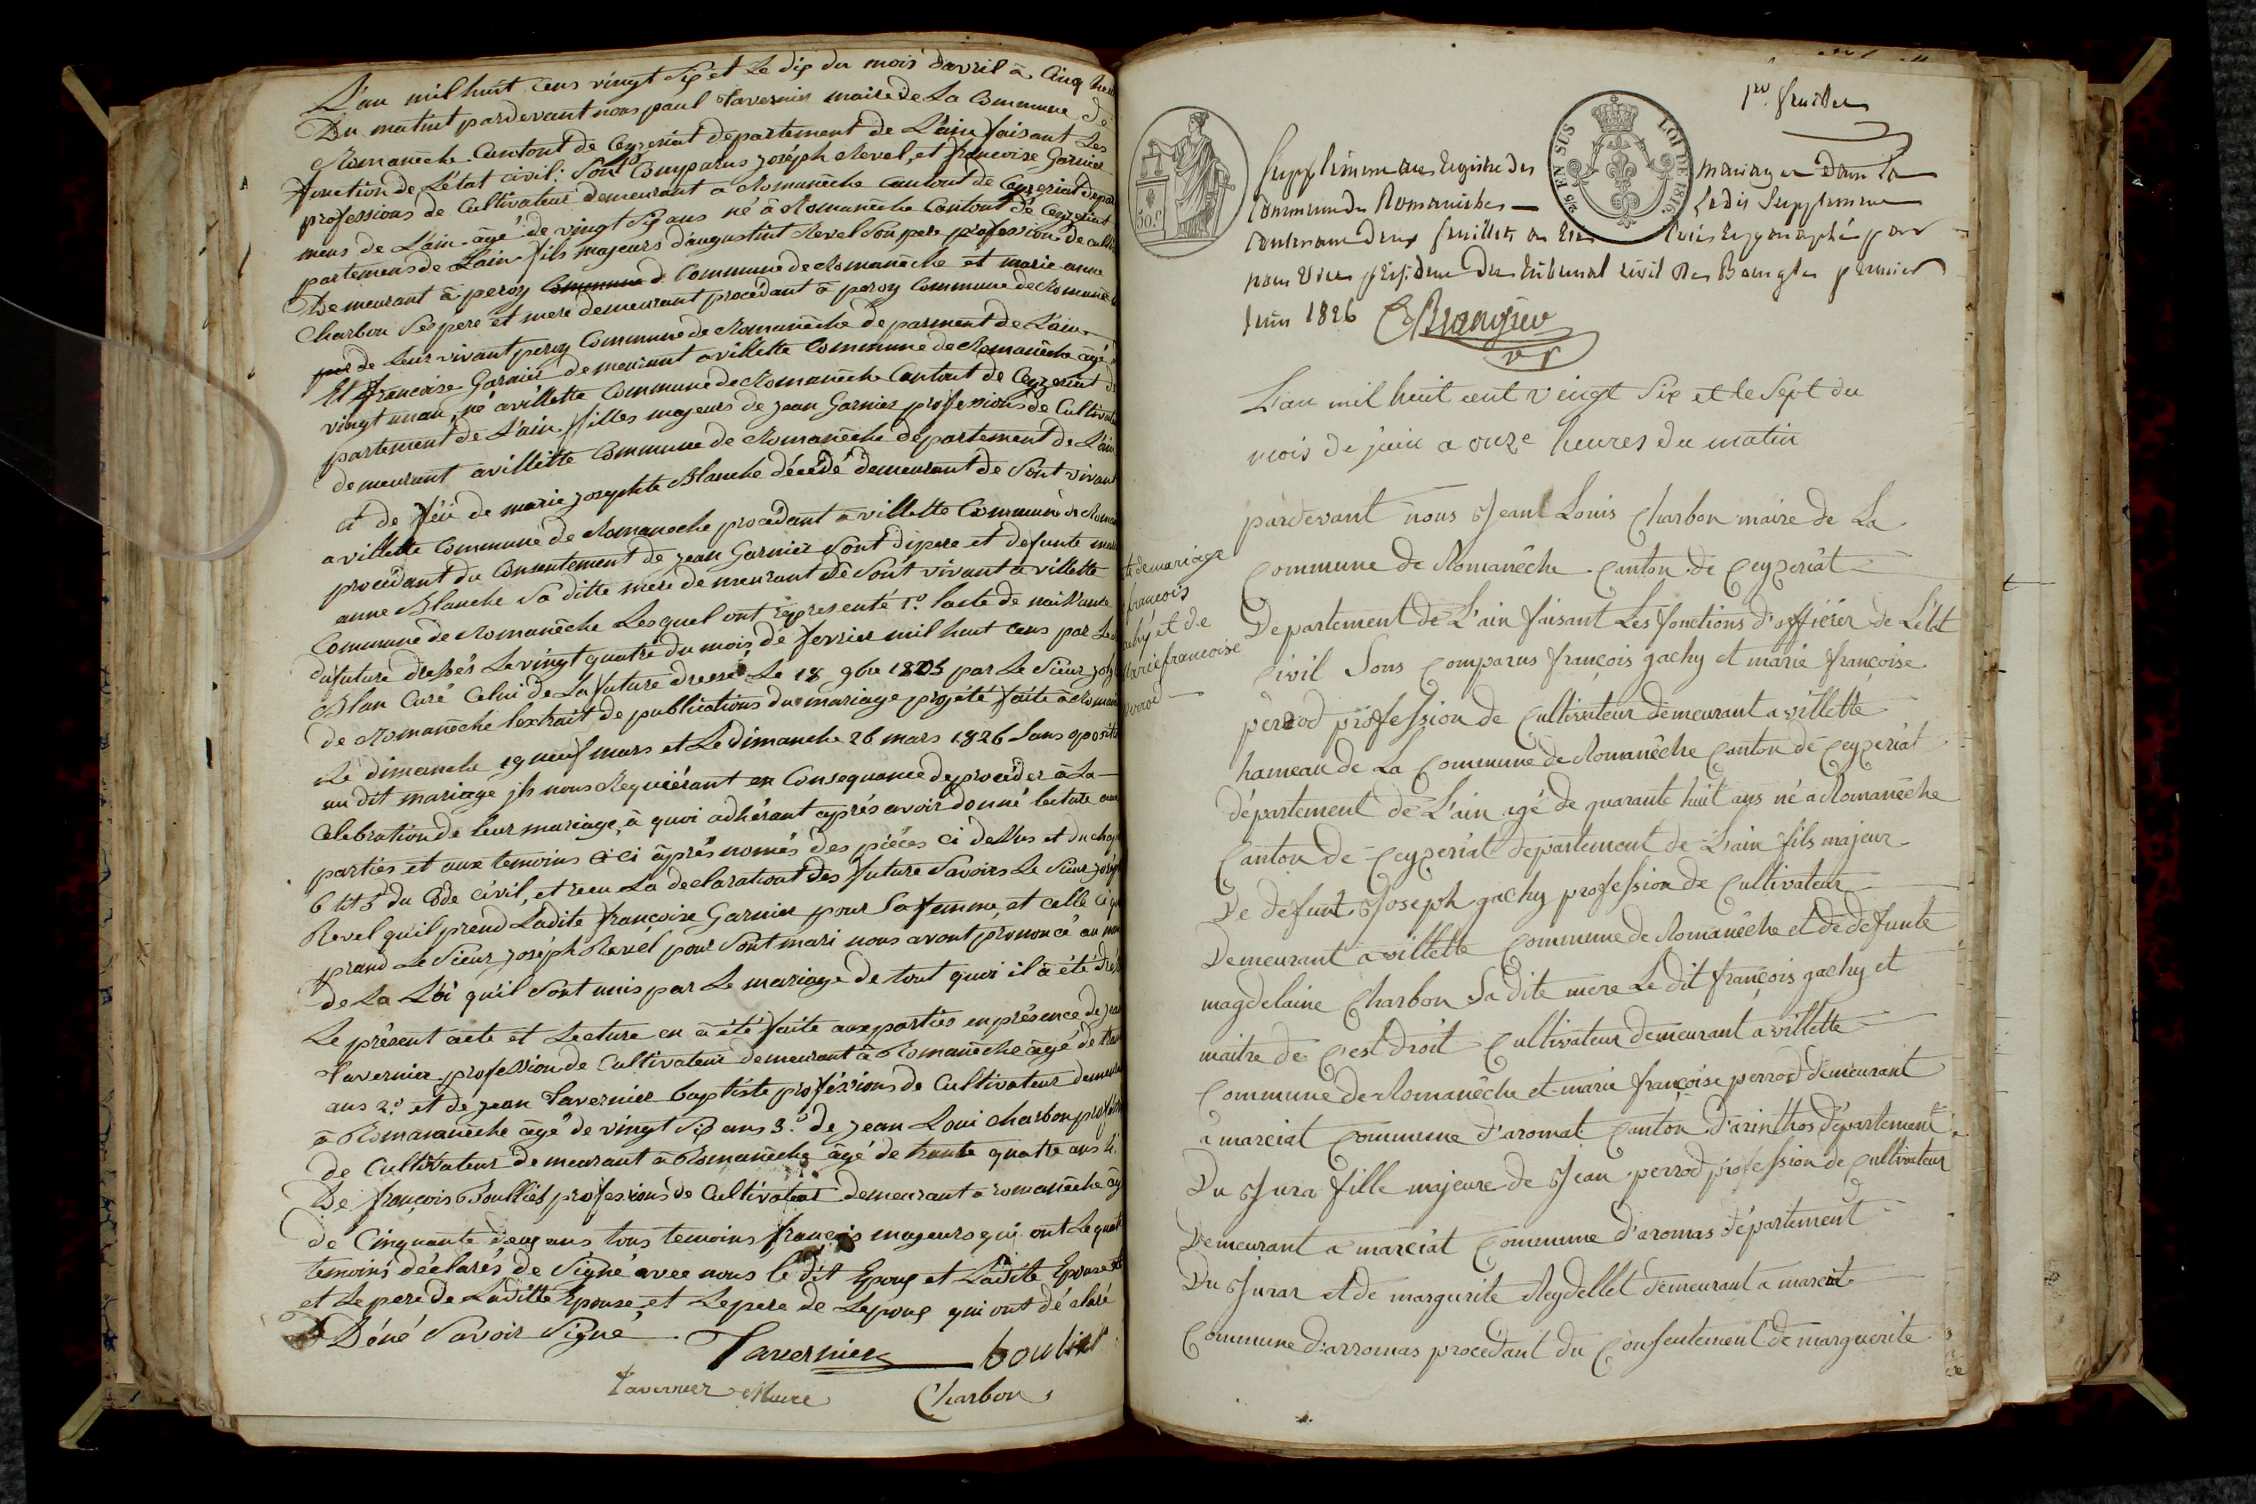 L'an mil huit cens vingt Six et Le dix du mois d'avril à Cinq heur
Du matint pardevant nous paul Tavernier maire de La Commune de
Romanêche Cantont de Ceyzeriat departement de L'ain faisant Les
fonction de L'état civil: Sont Comparus joséph Revel, et francoise Garnier
professions de Cultivateur demeurant à Romanêche Cantont de Ceyzeriat depar
mens de L'ain âgé de vingt Six ans né à Romanêche Cantont de Ceyzeriat
partemens de L'ain fils majeurs d'augustint Revel Son pere professions de culti
Demeurant à peroy Commune d Commune de Romanêche et marie anne
Charbon Ses pere et mere demeurant procédant à peroy Commune de Romanêc
de Leur vivant peroy Commune de Romanêche deparment de L'ain
Et francoise Garnier demeurant a villette Commune de Romanêche âgé
vingt un an, né a villette Commune de Romanêche Cantont de Ceyzeriat d
partement de L'ain filles majeurs de jean Garnier professions de Cultivate
demeurant à villette Commune de Romanêche département de L'ain
et de feü de marie josephte Blanche décédé demeurant de Sont vivant
a villette Commune de Romaneche procédant à villette Commune de Roman
procédant du Consentement de jean Garnier Sont dipere et defunte ma
anne Blanche Sa ditte mere demeurant de Sont vivant a villette
Commune de Romanêche Lesquel ont représenté 1.o lacte de naissance
du future dressés Le vingt quatre du mois de fevrier mil huit cens par Le
Blan Curé Celui de La future dressé Le 18 9bre 1805 par Le Sieur
de Romanêche lextrait de publications du mariage projété faite à Roman
Le dimanche 19 neuf mars et Le dimanche 26 mars 1826 Sans oposit
au dit mariage jls nous Requiérant en Consequance de procéder à La
Celebration de leur mariage, à quoi adhérant aprés avoir donné lecture aux
parties et aux temoins ci ci âprés només des piéces ci dessus et du chap
6 tit 5 du Code civil, et recu La declarationt des future Savoirs Le Sieur josép
Revel quil prend Ladite françoise Garnier pour Sa femme, et celle ci qu
prand Le Sieur joséph Revel pour Sont mari nous avont prononcé au nom
de La Lôi qu'il Sont unis par Le mariage de tout quoi il à été dré
Le présent acte et Lecture en à été faite aux parties en présence de jean
Tavernier profession de Cultivateur demeurant à Romanêche âgé de
ans 2.o et de jean Tavernier baptiste proféssions de Cultivateur demeur
à Romaranêche âgé de vingt Six ans 3.o de jean Loui charbon profé
de Cultivateur demeurant à Romanêche âgé de trante quatre ans 4.
De françois Boulliet profesions de Cultivateur demeurant a romanêche âg
de Cinquante deux ans tous temoins français majeurs qui ont Le quatr
temoins déclarés de Signé avec nous lé dit Epoux et Ladite Epouse et
et Le pere de Laditte Epouse, et Le pere de Lepoux qui ont dé claré
Déné Savoir Signé
Tavernier boulliet
Tavernier Maire Charbon
1er. feuillet
2/5 EN SUS LOI DE 1816
50.c
Supplément au registre des mariages dans la
Commune de Romanêche Ledit Supplement
Contenant deux feuillets a été Coté et paraphé par
nous vice président du tribunal civil de Bourg le premier
Juin 1826
L'an mil huit cent vingt Six et le Sept du
mois de juin a onze heures du matin
pardevant nous Jean Louis Charbon maire de La
Commune de Romanêche Canton de Ceyzeriât
Département de L'ain faisant Les fonctions d'officier de L'état
Civil Sons Comparus françois gachy et marie françoise
perrod profession de Cultivateur demeurant a villette
hameau de La Commune de Romanêche Canton de Ceyzeriat
département de L'ain agé de quarante huit ans né a Romanêche
Canton de Ceyzeriat departement de L'ain fils majeur
De defunt Joseph gachy profession de Cultivateur
Demeurant a villette Commune de Romanêche et de defunte
magdelaine Charbon Sa dite mere Le dit françois gachy et
maitre de C'est droit Cultivateur demeurant a villette
Commune de Romanêche et marie françoise perrod demeurant
a marciat Commune d'aromat Canton d'arinthos département
Du Jura fille majeure de Jean perrod profession de Cultivateur
Demeurant a marciat Commune d'aromas département
Du Jurar et de margurite Reydellet demeurant a marciat
Commune d'arromas procédant du Consentement de marguerite
te de mariage
francois
achy et de
Marie francoise
perrod